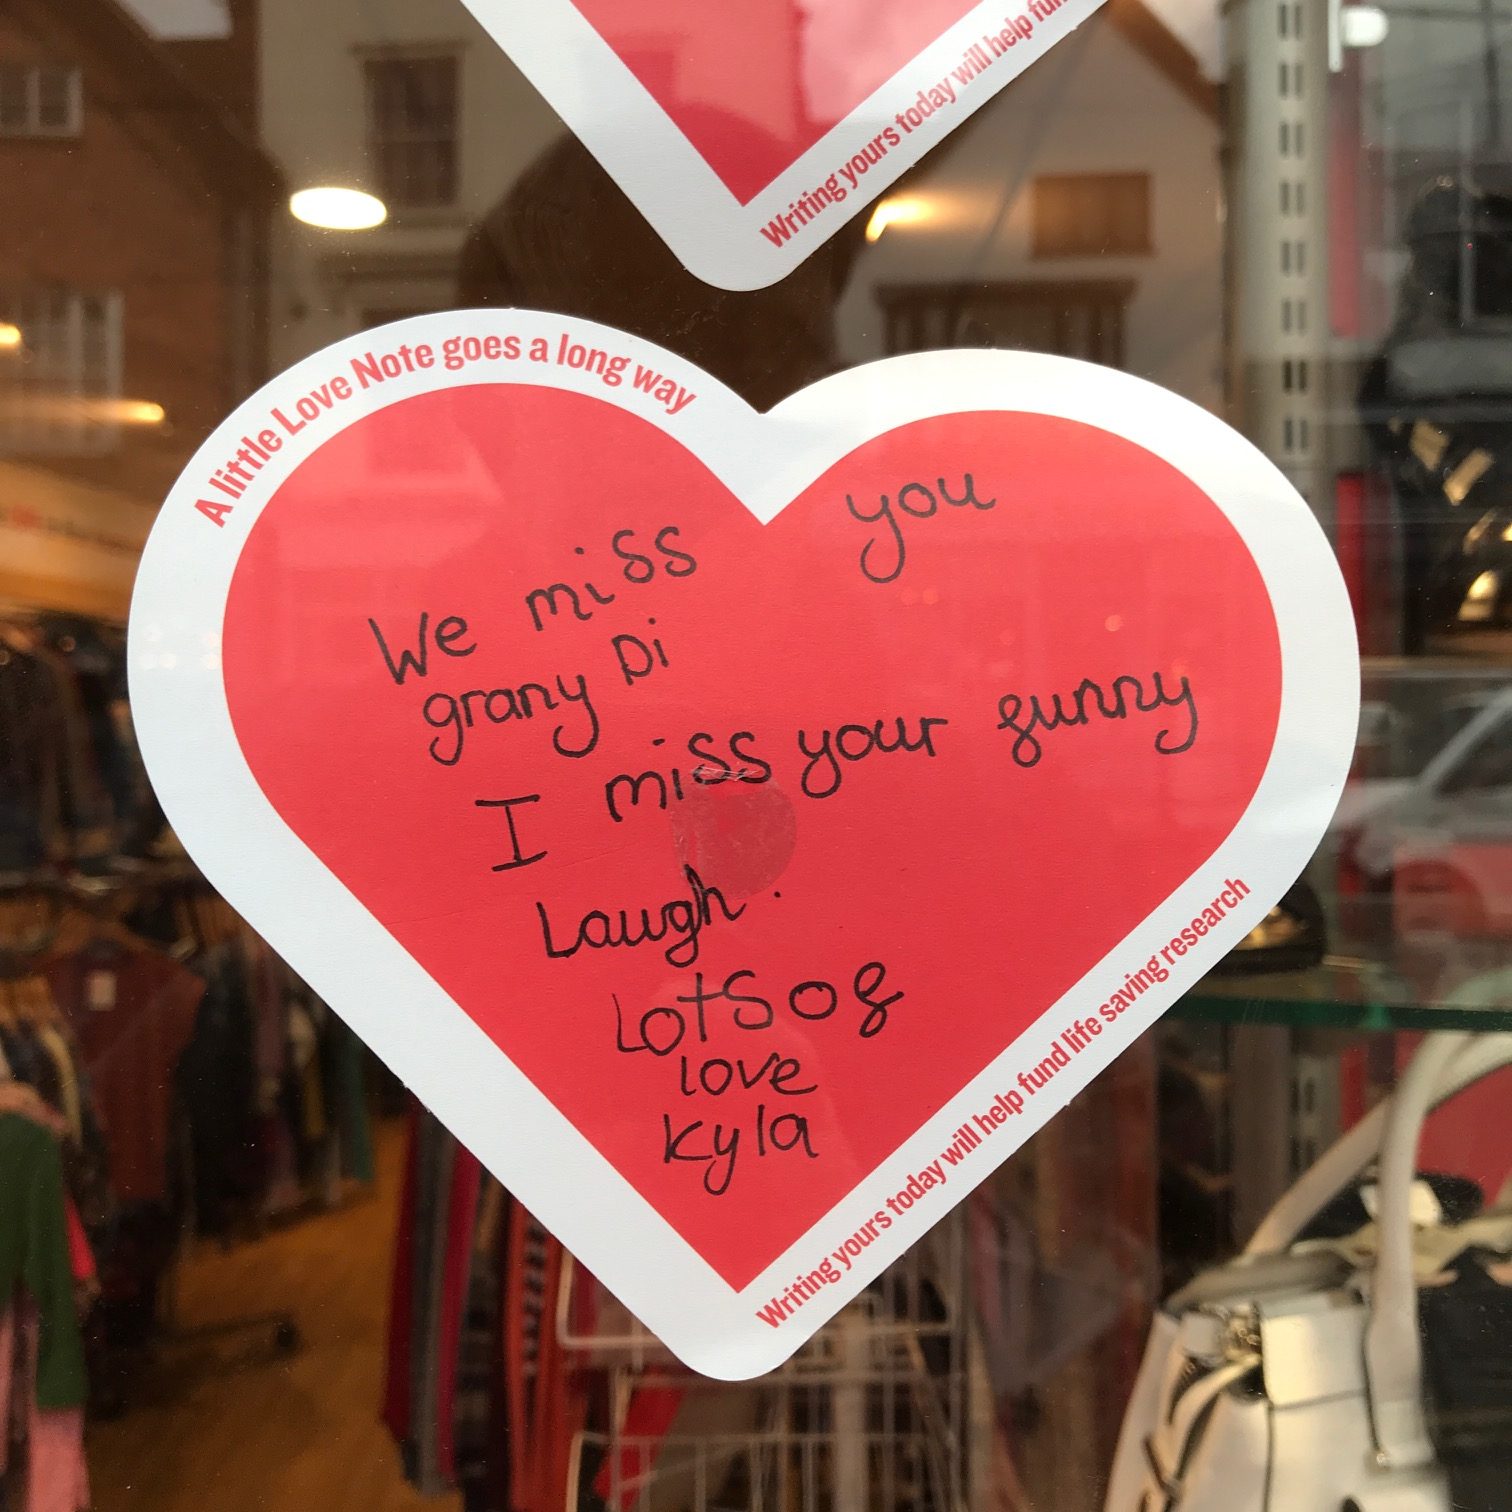 Writing yours today will help fun
A little Love Note goes a long way
We miss you
grany Di
I miss your funny
Laugh.
Lots of
love
Kyla
Writing yours today will help fund life saving research